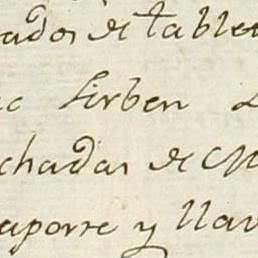 ados de table
c sirben
chadas de
aporre y llav